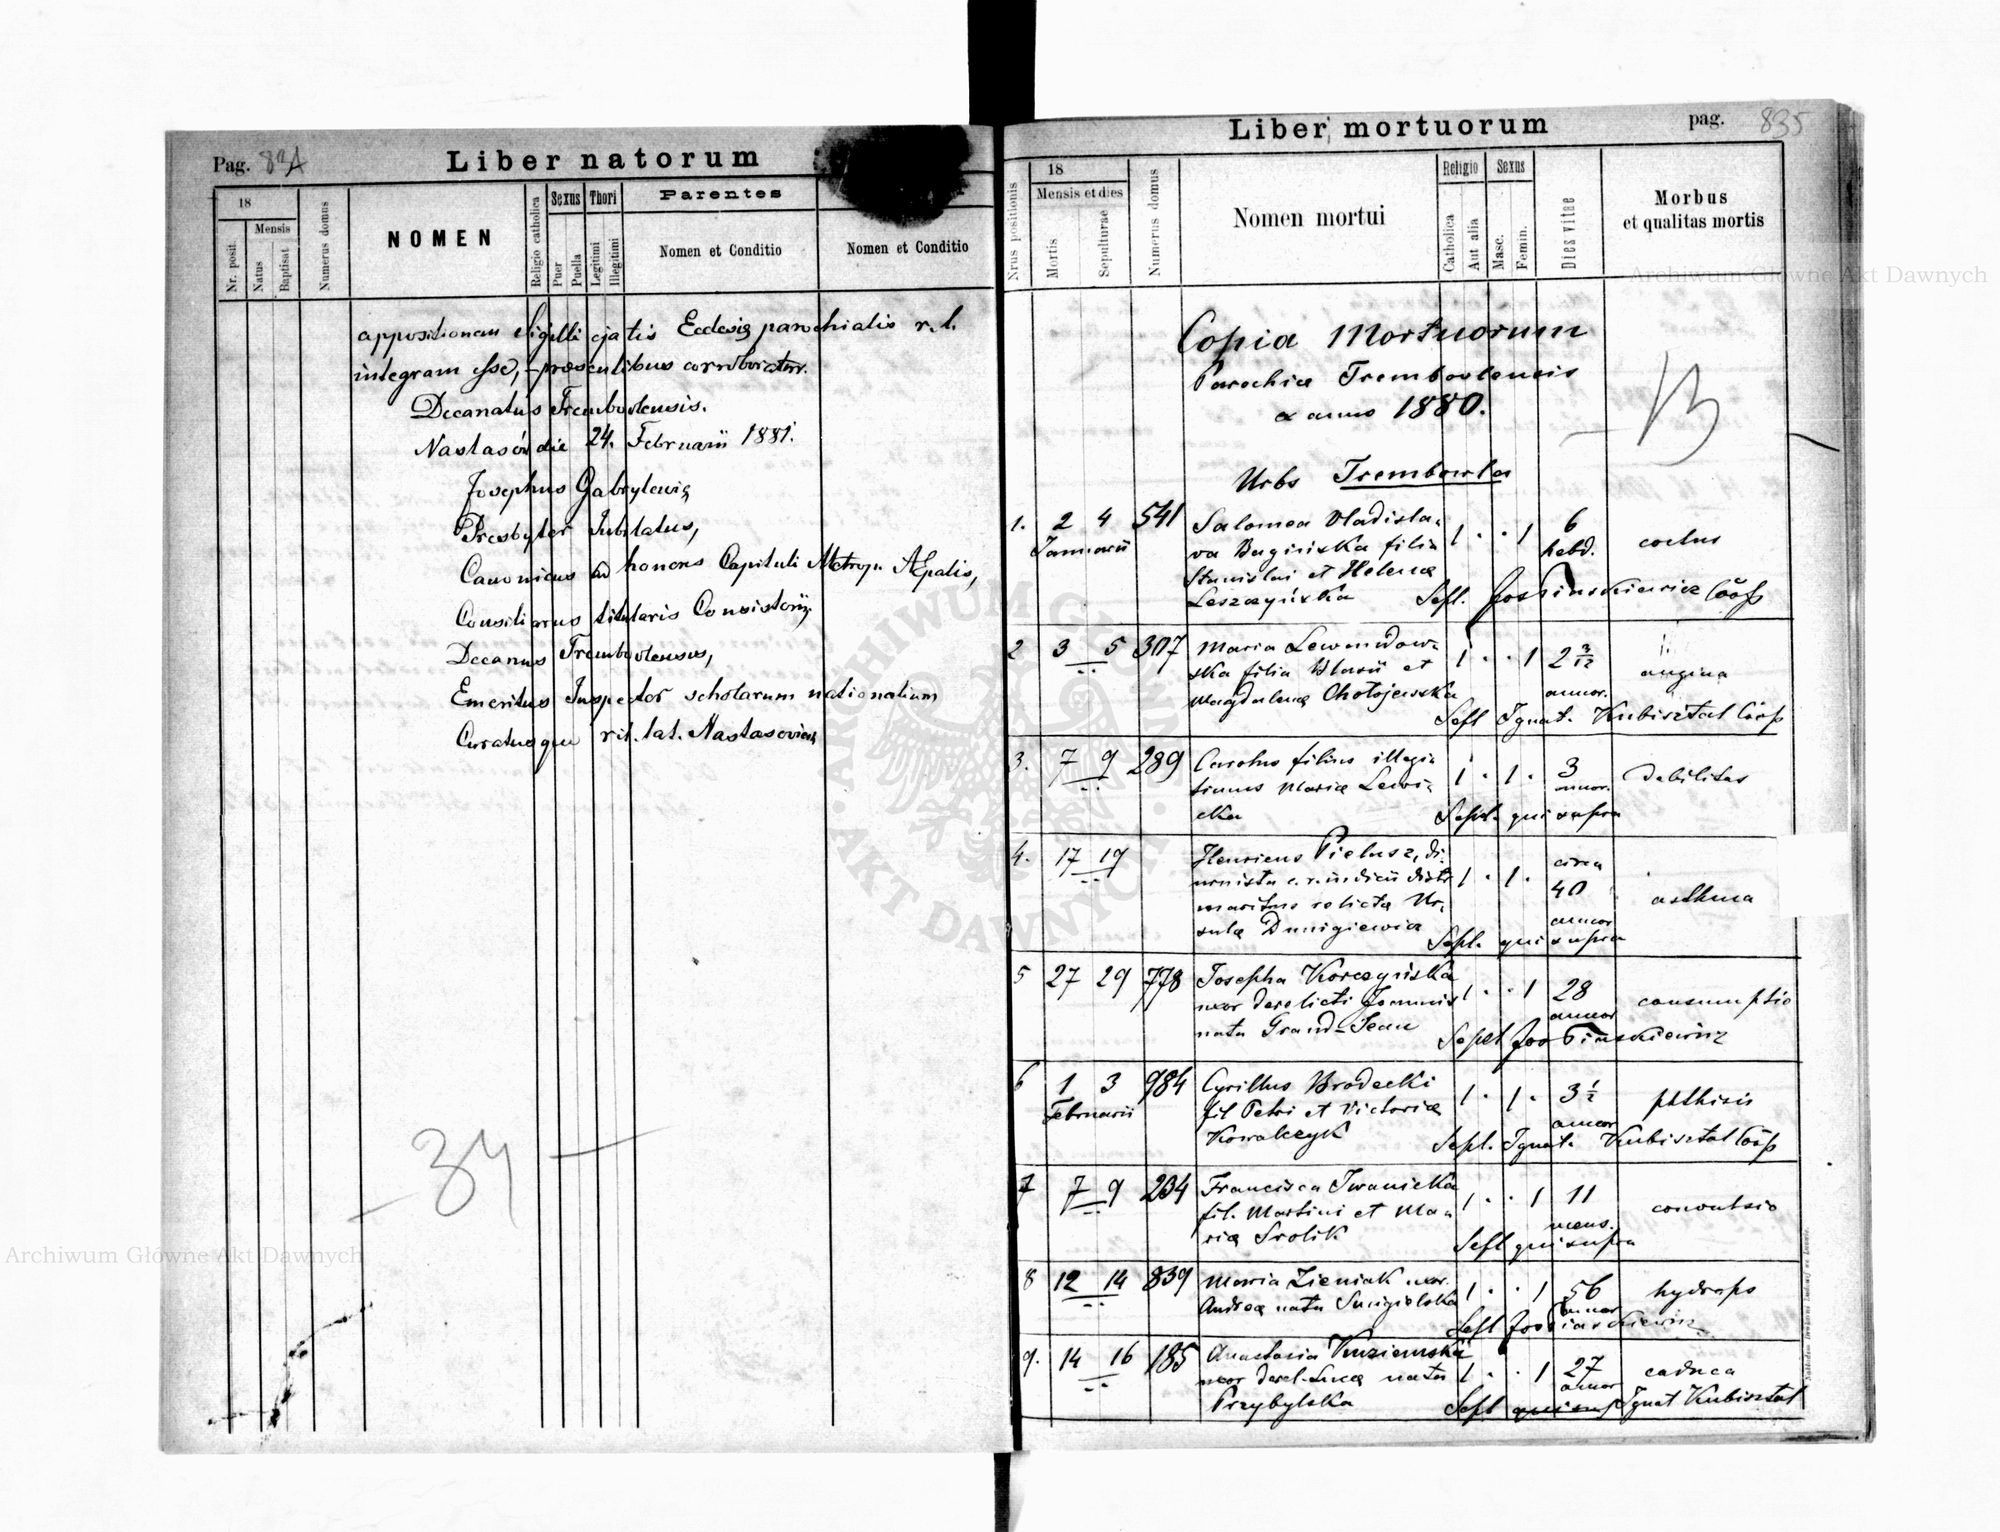 Pag. 834
Liber natorum
18
Mensis
Nr. posit.
Natus
Baptisat
Numerus domus
NOMEN
Religio catholica
Sexus
Puer
Puella
Thori
Legitimi
Illegitimi
Parentes
Nomen et Conditio
Nomen et Conditio
appositionem Sigilli ejatis Ecclesiæ parochialis r. l.
integram esse, præsentibus corroboratur.
Decanatus Trembovlensis.
Nastasów die 24. Februarii 1881.
Josephus Gabrylewicz
Presbyter Jubilatus,
Canonicus ad honores Capituli Metrop. AEpalis,
Consiliarius titularis Consistorii,
Decanus Trembovlensis,
Emeritus Inspector scholarum nationalium
Curatusque rit. lat. Nastasoviens
- 34 -
Liber mortuorum
pag. 835
Nrus positionis
18
Mensis et dies
Mortis
Sepulturae
Numerus domus
Nomen mortui
Religio
Catholica
Aut alia
Sexus
Masc.
Femin.
Dies vitae
Morbus
et qualitas mortis
Copia Mortuorum
Parochiæ Trembovlensis
ex anno 1880.
Urbs Trembowla
1. 2 4 541 Salomea Vladisla-
Januarii
va Bugińska filia
Stanislai et Helenæ
Leszczyńska
1 . . 1 6 hebd. coctus
Sepl. Jos Piaskiewicz Coop
2 3 5 307 Maria Lewandow-
ska filia Blasii et
Magdalenæ Chołojewska
1 . . 1 2 3/12 annor. angina
Sepl Ignat. Kubisztal Coop
3. 7 9 289 Carolus filius illegi-
timus Mariæ Lewi-
cka
1 . 1 . 3 annor. debilitas
Sepl. qui supra
4. 17 19 Henricus Pielusz, di-
urnista c. r. iudicii distr
maritus relictæ Ur-
sulæ Dunigiewicz
1 . 1 . circa 40 annor asthma
Sepl. qui supra
5 27 29 778 Josepha Korczyńska
uxor derelicti Joannis
nata Grand-Jean
1 . . 1 28 annor consumptio
Sepel Jos Piaskiewicz
6 1 3 984 Cyrillus Brodecki
Februarii
fil Petri et Victoriæ
Kowalczyk
1 . 1 . 3 1/2 annor phthisis
Sepl. Ignat. Kubisztal Coop
7 7 9 234 Francisca Iwanicka
fil. Martini et Ma-
riæ Srolik
1 . . 1 11 mens. convulsio
Sepl qui supra
8 12 14 839 Maria Zieniak uxor.
Andreæ nata Smigielska
1 . . 1 56 annor hydrops
Sepl Jos Piaskiewicz
9. 14 16 185 Anastasia Kuziemska
uxor derel. Lucæ nata
Przybylska
1 . . 1 27 annor caduca
Sepl qui sup Ignat Kubisztal
Archiwum Główne Akt Dawnych
Archiwum Główne Akt Dawnych
ARCHIWUM GŁÓWNE AKT DAWNYCH